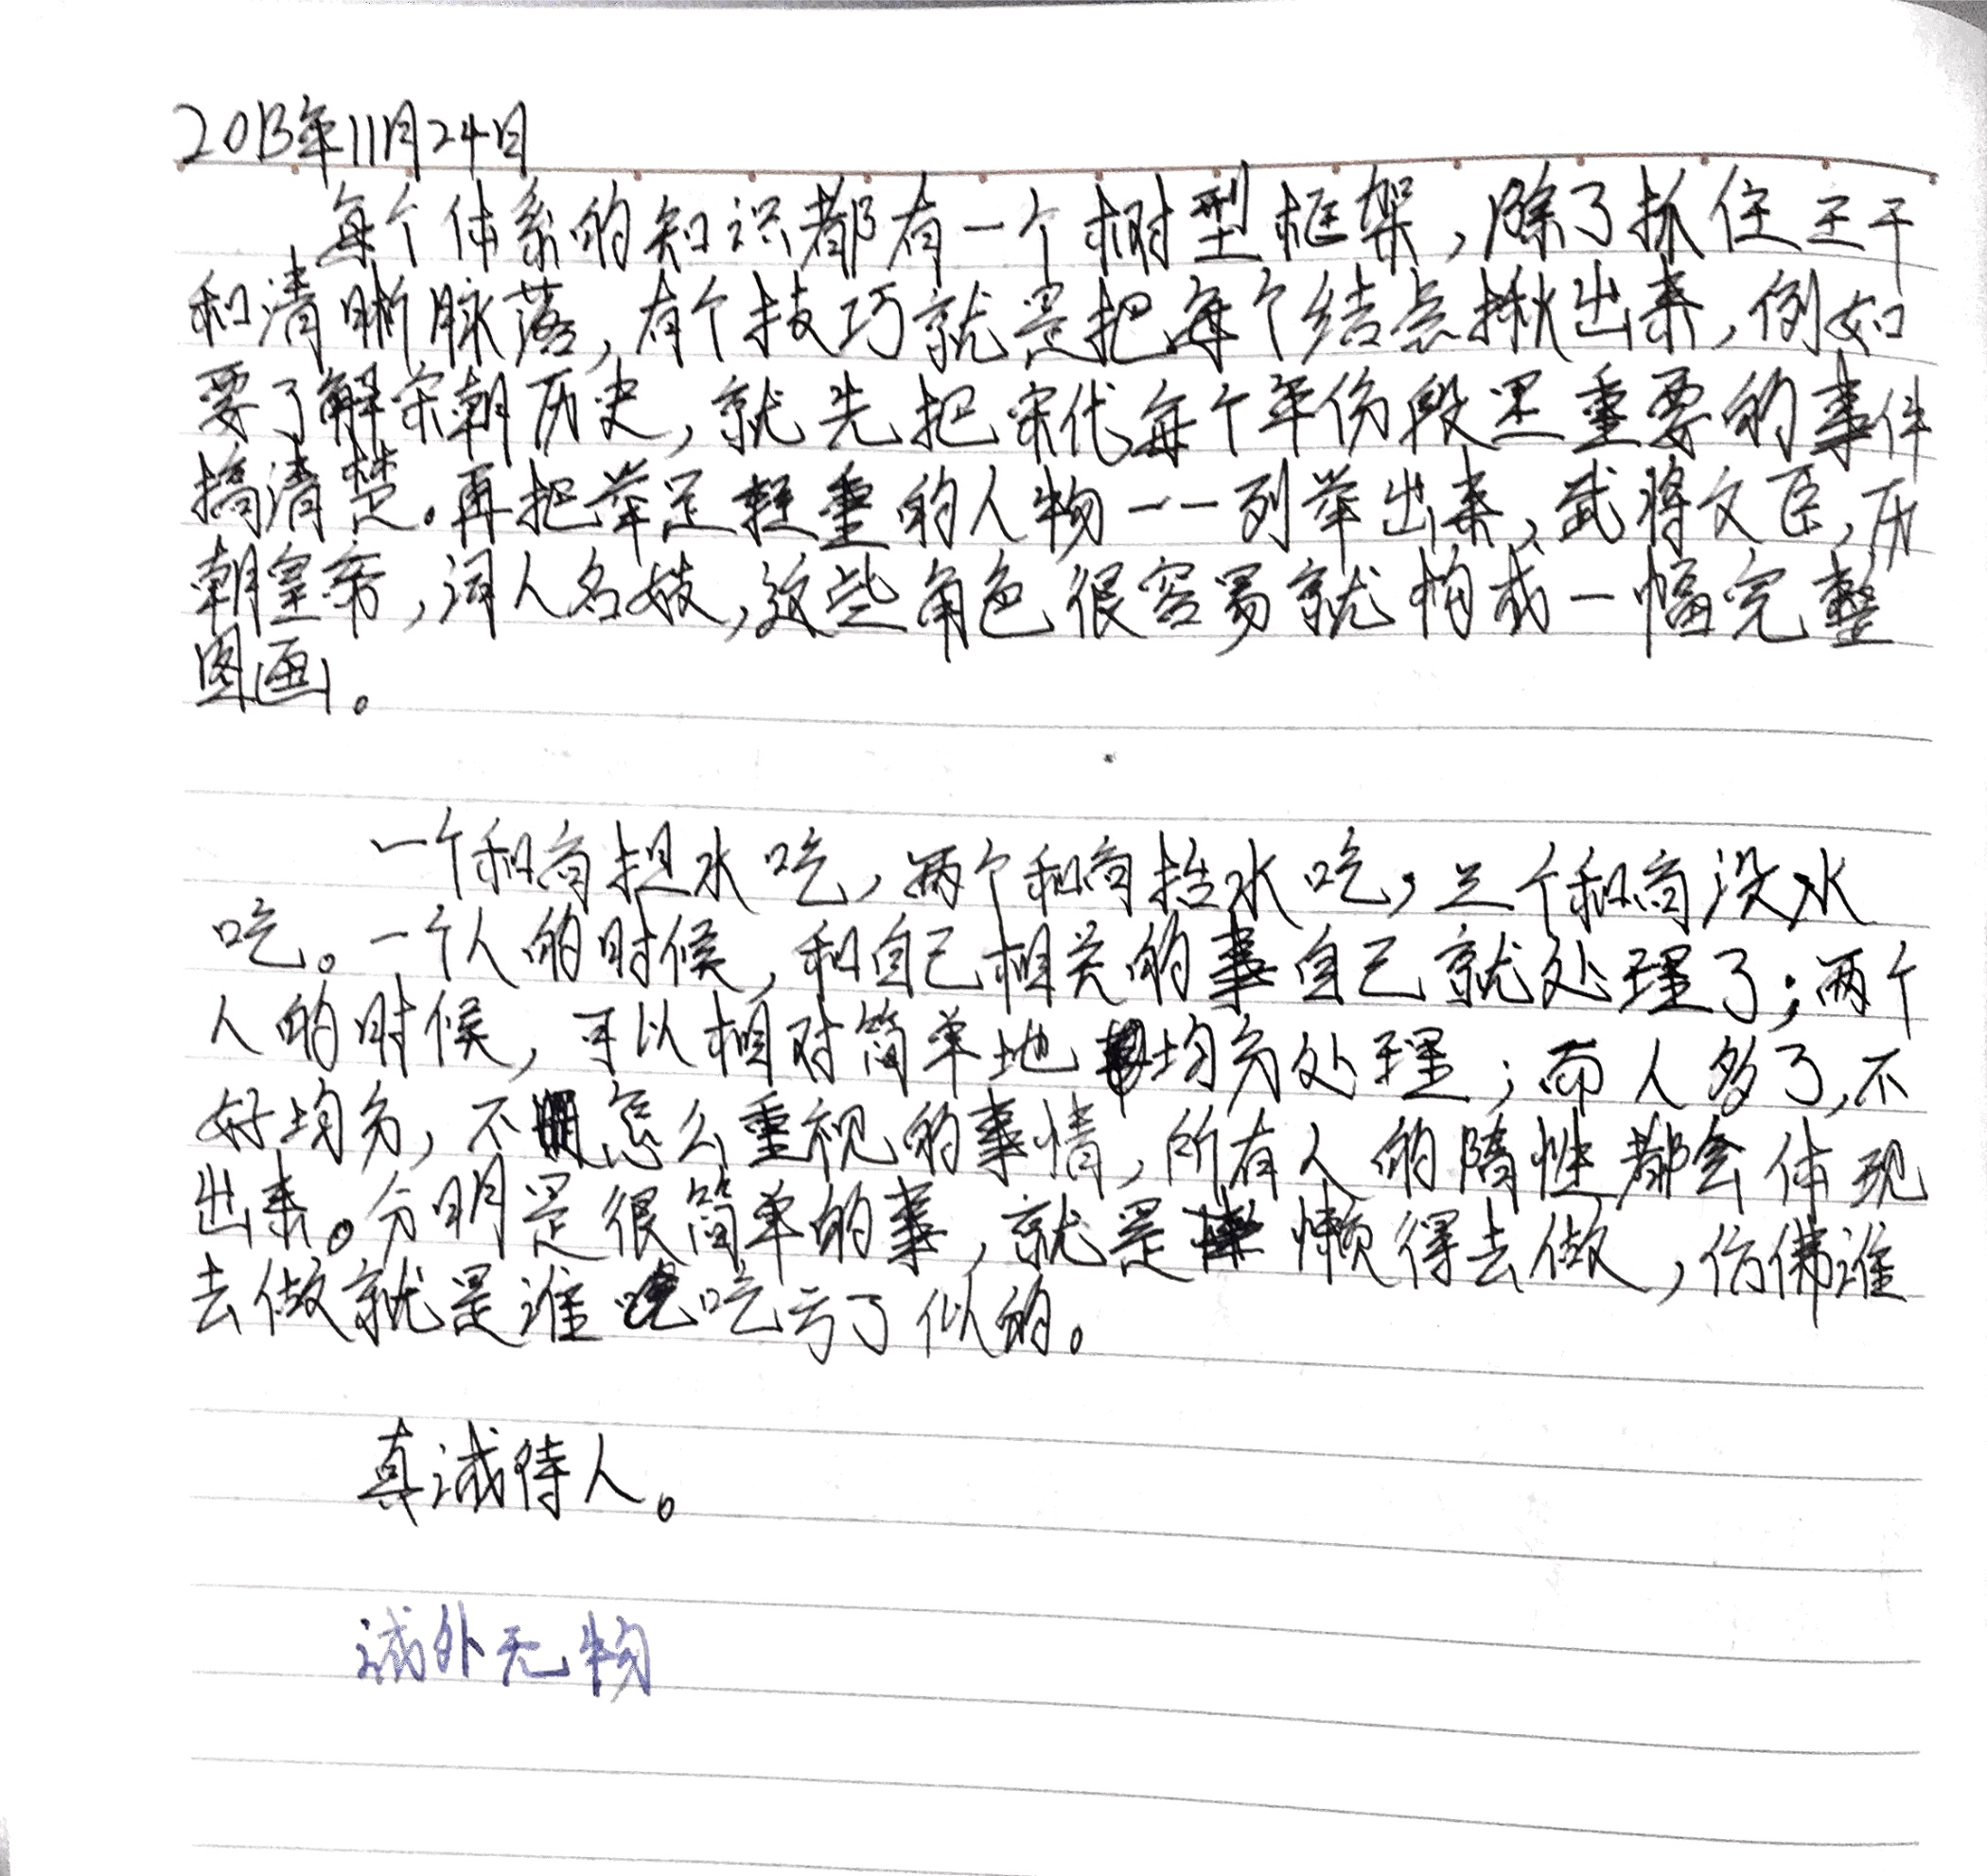 2013年11月24日
每个体系的知识都有一个树型框架，除了抓住主干
和清晰脉落，有个技巧就是把每个结点揪出来，例如
要了解宋朝历史，就先把宋代每个年份段里重要的事件
搞清楚。再把举足轻重的人物一一列举出来，武将文臣，历
朝皇帝，词人名妓，这些角色很容易就构成一幅完整
图画。
一个和尚担水吃，两个和尚抬水吃，三个和尚没水
吃。一个人的时候，和自己相关的事自己就处理了；两个
人的时候，可以相对简单地均分处理；而人多了，不
好均分，不怎么重视的事情，所有人的隋性都会体现
出来。分明是很简单的事，就是懒得去做，仿佛谁
去做就是谁吃亏了似的。
真诚待人。
诚外无物